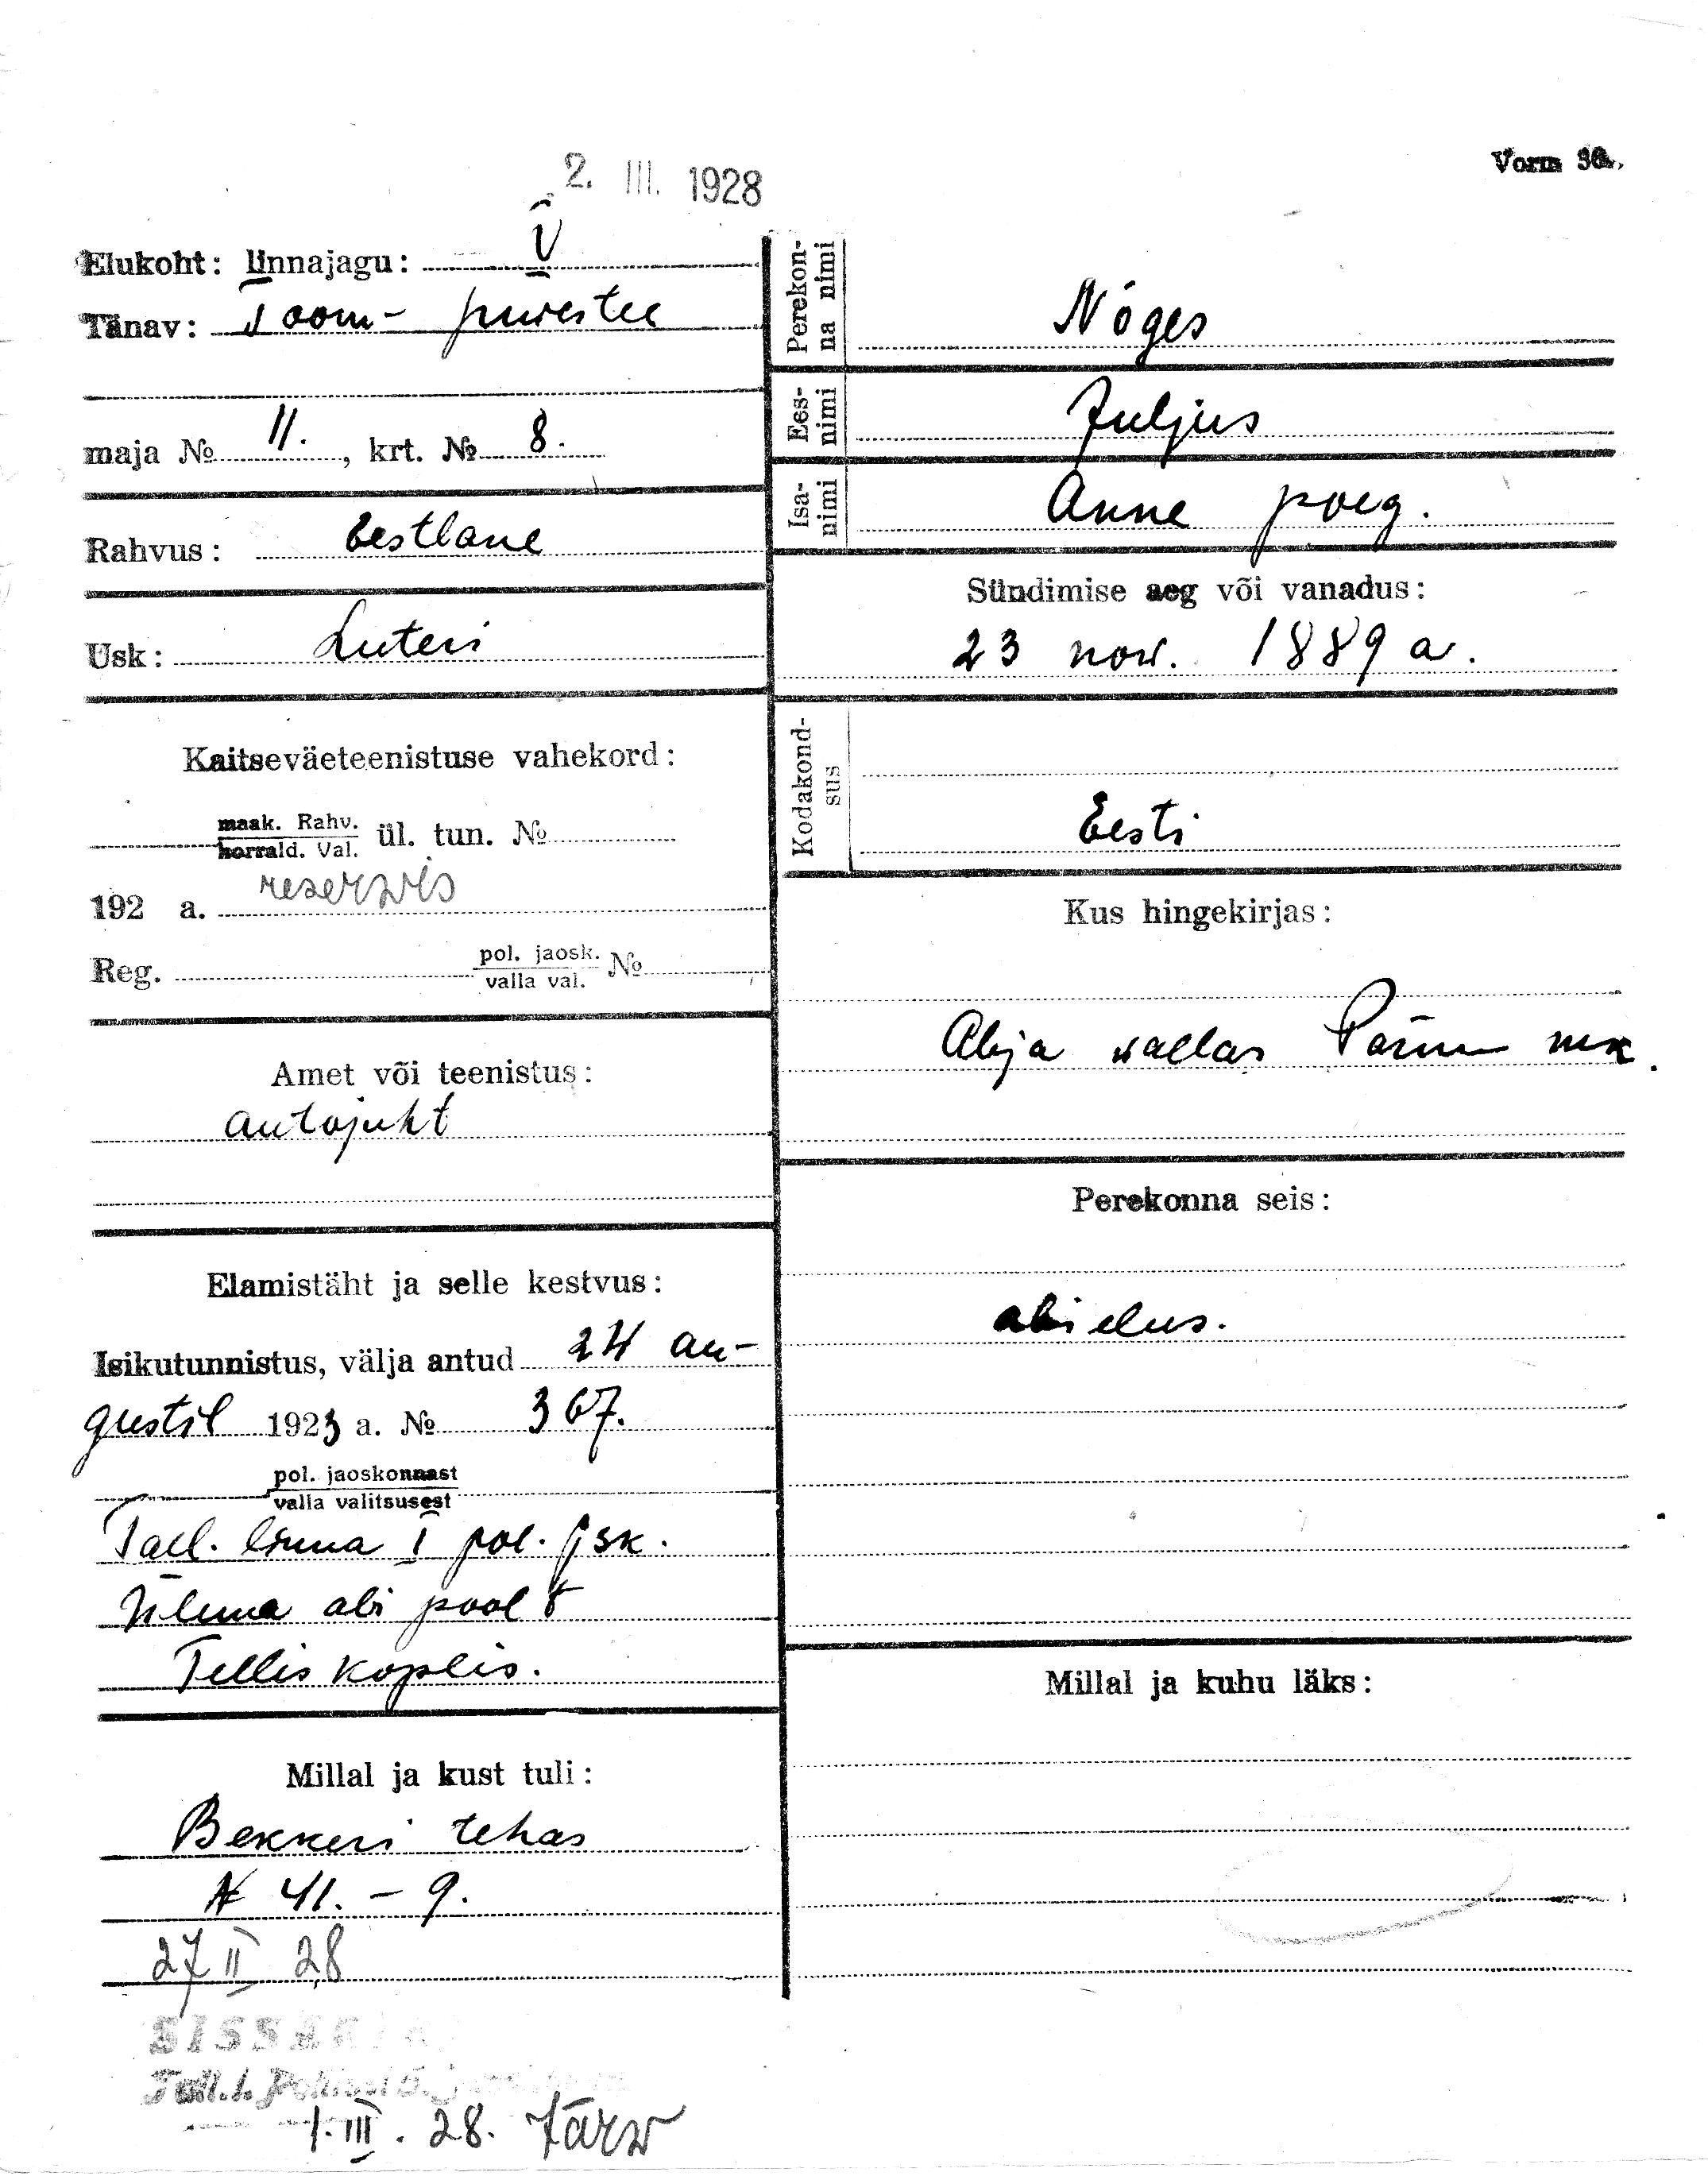 2. III. 1928
Vorm 36.
Elukoht: linnajagu: V
Tänav: Toom- puiestee
maja № 11., krt. № 8.
Rahvus: Eestlane
Usk: Luteri
Kaitseväeteenistuse vahekord:
maak. Rahv.
korrald. Val. ül. tun. №
192 a. reserwis
Reg. pol. jaosk.
valla val. №
Amet või teenistus:
autojuht
Elamistäht ja selle kestvus:
Isikutunnistus, välja antud 24 au-
gustil 1923 a. № 367.
pol. jaoskonnast
valla valitsusest
Tall. linna I pol. jsk.
ülema abi poolt
Telliskoplis.
Millal ja kust tuli:
Bekkeri tehas
№ 41. - 9.
27 II 28
Perekon-
na nimi
Nõges
Ees-
nimi
Juljus
Isa-
nimi
Anne poeg.
Sündimise aeg või vanadus:
23 now. 1889 a.
Kodakond-
sus
Eesti
Kus hingekirjas:
Abja wallas Pärnu mk.
Perekonna seis:
abielus.
Millal ja kuhu läks:
1. III. 28. Järw